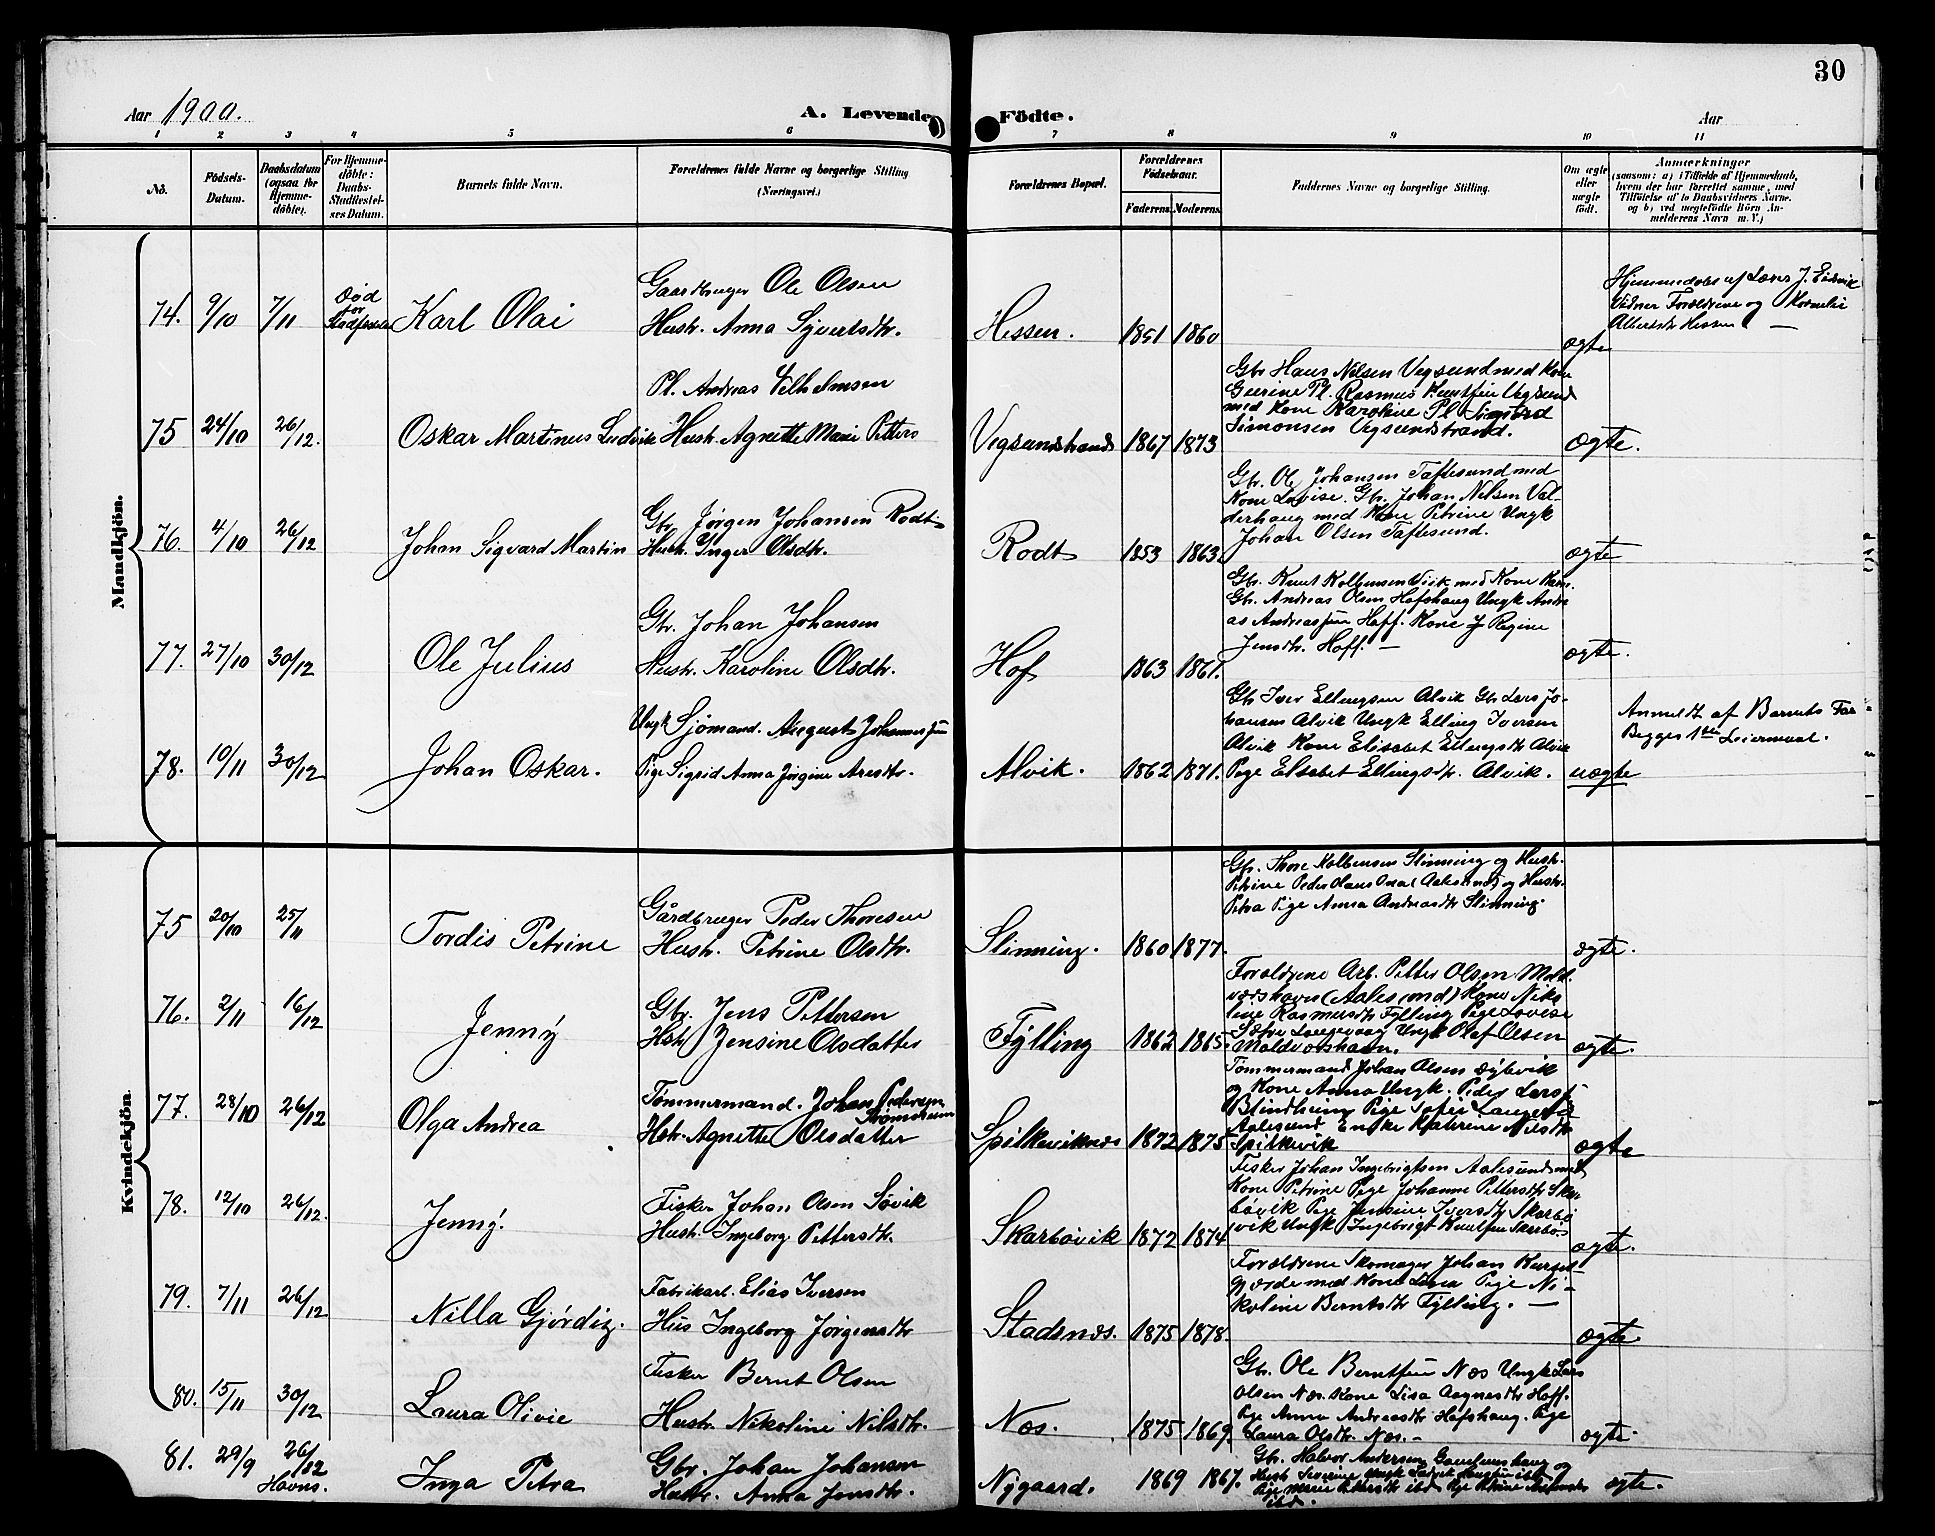 30
Aar 1900.
A. Levende Födte.
Aar
1 2 3 4 5 6 7 8 9 10 11
No.
Födsels-Datum.
Daabsdatum (ogsaa for Hjemme-döbte).
For Hjemme-döbte: Daabs-Stadfæstel-ses Datum.
Barnets fulde Navn.
Forældrenes fulde Navne og borgerlige Stilling (Næringsvei.)
Forældrenes Bopæl.
Forældrenes Födselsaar.
Faderens. Moderens.
Faddernes Navne og borgerlige Stilling.
Om ægte eller uægte födt.
Anmærkninger
(saasom: a) i Tilfælde af Hjemmedaab, hvem der har forrettet samme, med Tilföielse af to Daabsvidners Navne. og b) ved uægtefödte Börn An-melderens Navn m. V.)
Mandkjön.
74. 9/10 7/11 Död for Stadfæstelse Karl Olai
Gaardbruger Ole Olsen
Hustr. Anna Sjvertsdtr.
Hessen. 1851 1860
ægte
Hjemmedøbt af Lærer J. Eidsvik
Vidner Forældrene og Kornelie
Albertsdtr Hessen —
75 24/10 26/12. Oskar Martinus Ludvik
Pl. Andreas Vilhelmsen
Hustr. Agnette Marie Petters
Vegsundstrand 1867 1873
Gbr Hans Nilsen Vegsund med Kone
Geerine Pl. Rasmus Knutsen Vegsund
med Kone Karoline Pl Sigvard
Simonsen Vegsundstrand.
Ægte.
76. 4/10 26/12 Johan Sigvard Martin
Gbr Jørgen Johansen Rodt
Hustr. Inger Olsdtr.
Rodt 1853 1863
Gbr. Ole Johansen Taftesund med
Kone Lovise. Gbr. Johan Nelsen Val-
derhaug med Kone Petrine Ungk
Johan Olsen Taftesund.
ægte
77. 27/10 30/12 Ole Julius
Gbr. Johan Johansen
Hustr. Karoline Olsdtr.
Hof 1863 1861.
Gbr. Knut Kolbensen Vik med Kone Karn.
Gbr. Andreas Olsen Hofshaug Ungk Andre
as Andreassen Hoff. Kone Regine
Jensdtr. Hoff. —
ægte.
78. 10/11 30/12 Johan Oskar.
Ungk Sjømand. August Johannessen
Pige Sigrid Anna Jørgine Aresdtr.
Alvik. 1862 1871.
Gbr Iver Ellingsen Alvik Gbr Lars Jo-
hansen Alvik Ungk Elling Iversen
Alvik Kone Elisabet Ellingsdtr Alvik
Pige Elsebet Ellingsdtr. Alvik.
uægte
Anmeldt af Barnets Far
Begges 1ste Leiermaal.
Kvindekjön.
75 20/10 25/11 Tordis Petrine
Gårdbruger Peder Thoresen
Hustr. Petrine Olsdtr.
Slinning. 1860 1877.
Gbr. Thore Kolbensen Slinning og Hustr.
Petrine Peder Hans Aalesund og Hustr.
Petra Pige Anna Andreasdtr Slinning.
ægte.
76. 2/11 16/12 Jenny
Gbr. Jens Pettersen
Hstr Jensine Olsdatter
Fylling 1862 1865.
Forældrene Arb. Petter Olsen Mold-
værshavn (Aalesund) Kone Niko
line Rasmusdtr Fylling Pige Lovise
Sætre Langevaag Ungk Olaf Olsen
Moldværshavn.
ægte.
77. 28/10 26/12 Olga Andrea
Tømmermand. Johan Pedersen
Strømsheim
Hstr. Agnette Olsdatter
Spilkeviknes 1872 1875
Tømmermand Johan Olsen
og Kone Anna Ungk. Peder Larss.
Blindheim Pige Sofie Langevåg
Aalesund Enke Katerine Nilsdtr
Spilkevik
ægte
78. 12/10 26/12. Jenny.
Fisker Johan Olsen Søvik
Hustr. Ingeborg Pettersdtr.
Skarbøvik 1872 1874
Fisker Johan Ingebrigtsen Aalesund med
Kone Petrine Pige Johanne Pettersdtr Skar
bøvik Pige Jensine Iversdtr Skarbø
vik Ungk Ingebrigt Knutsen Skarbø-
ægte.
79. 7/11 26/12 Nilla Gjørdig.
Fabrikarb. Elias Iversen
Hus Ingeborg Jørgensdtr
Stadsnæs. 1875 1878.
Forældrene Skomager Johan
Gjærde med Kone Lina Pige Ni-
koline Berntsdtr Fylling. —
ægte
80. 15/11 30/12 Laura Olivie
Fisker Bernt Olsen
Hustr. Nikoline Nilsdtr.
Næs. 1875 1869.
Gbr. Ole Berntsen Næs Ungk Lars
Olsen Næs. Kone Lisa Aagnesdtr Hoff.
Pige Anna Andreasdtr Hofshaug. Pige
Laura Olsdtr. Næs. —
ægte.
81. 29/9 26/12 Havns. Inga Petra
Gbr. Johan Johansen
Hustr. Anna Jensdtr.
Nygaard. 1869 1867.
Gbr. Halvor Andersen Gamlemshaug og
Hustr Severine Ungk
Pige Marie Pettersdtr ibd Pige Petrine
ibd.
ægte.